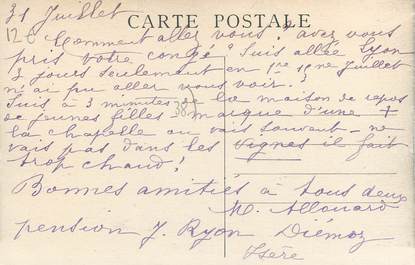 31 Juillet
CARTE POSTALE
Comment allez vous? avez vous
pris votre congé? Suis allée Lyon
2 jours seulement en Juillet
n'ai pu aller vous voir?
Suis à 3 minutes de la maison de repos
de jeunes filles marque d'une +
la chapelle ou vais souvent - ne
vais pas dans les vignes il fait
trop chaud!
Bonnes amitiés à tous deux
M. Allouard
pension J. Ryon Diémoz
Isère